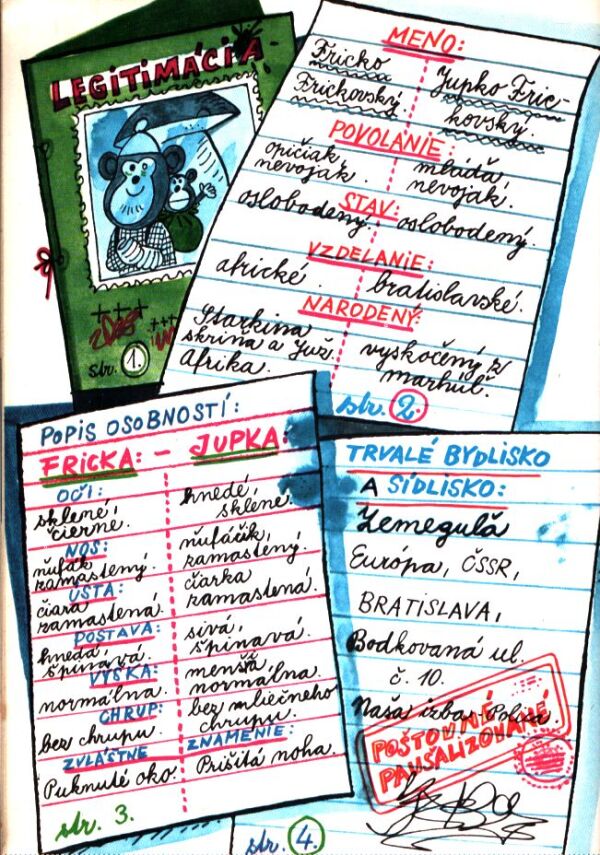 LEGITIMÁCIA
str. 1.
MENO:
Fricko Jupko Fric-
Frickovský. kovský.
POVOLANIE:
opičiak, mláďa,
nevojak. nevojak.
STAV:
oslobodený. oslobodený.
VZDELANIE:
africké. bratislavské.
NARODENÝ:
Starkina
skriňa a Juž. vyskočený z
Afrika. marhúľ.
str. 2.
POPIS OSOBNOSTÍ:
FRICKA: - JUPKA:
OČI:
sklené, hnedé,
čierne. sklené.
NOS:
ňufák ňufáčik,
zamastený. zamastený.
ÚSTA:
čiara čiarka
zamastená. zamastená.
POSTAVA:
hnedá, sivá,
špinavá. špinavá.
VÝŠKA:
normálna. menšá
normálna.
CHRUP:
bez chrupu. bez mliečneho
chrupu.
ZVLÁŠTNE ZNAMENIE:
Puknuté oko. Prišitá noha.
str. 3.
TRVALÉ BYDLISKO
A SÍDLISKO:
Zemeguľa
Európa, ČSSR,
BRATISLAVA,
Bodkovaná ul.
č. 10.
Naša izba-Polica.
POŠTOVNÉ
PAUŠALIZOVANÉ
str. 4.